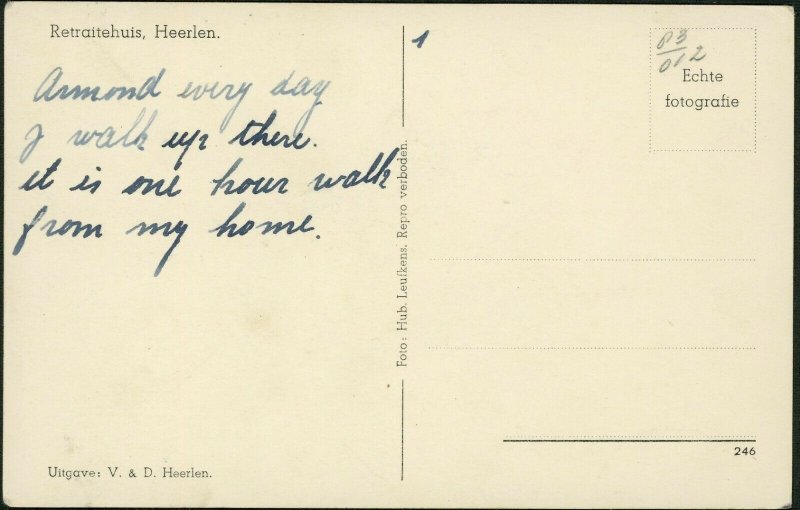 Retraitehuis, Heerlen.
Armond every day
I walk up there.
it is one hour walk
from my home.
Uitgave: V. & D. Heerlen.
Foto: Hub. Leufkens. Repro verboden.
1
83/012
Echte
fotografie
246